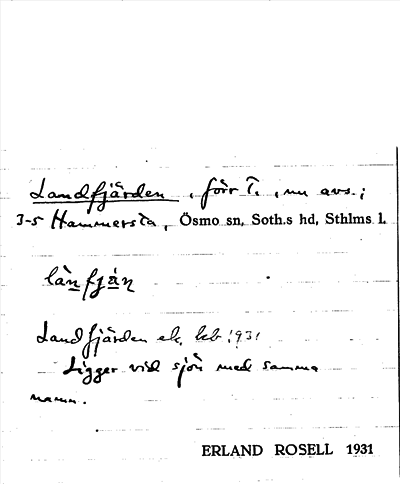 Landfjärden, förr T., nu avs.;
3-5 Hammersta, Ösmo sn, Soth.s hd, Sthlms l.
lànfjàn
Landfjärden ek. kb 1931
Ligger vid sjön med samma
namn.
ERLAND ROSELL 1931